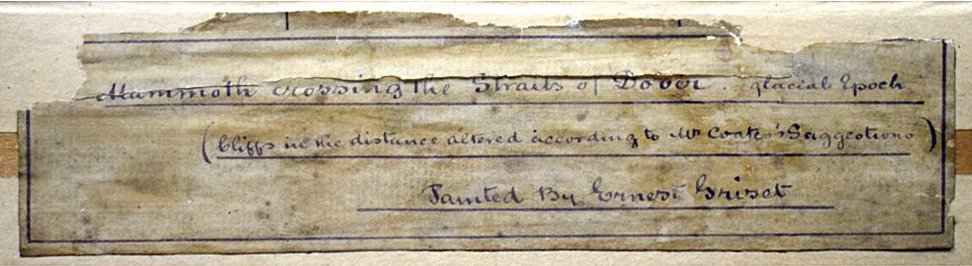 Mammoth crossing the Straits of Dover. glacial Epoch
(Cliffs in the distance altered according to Mr Coater's Suggestions)
Painted By Ernest Griset